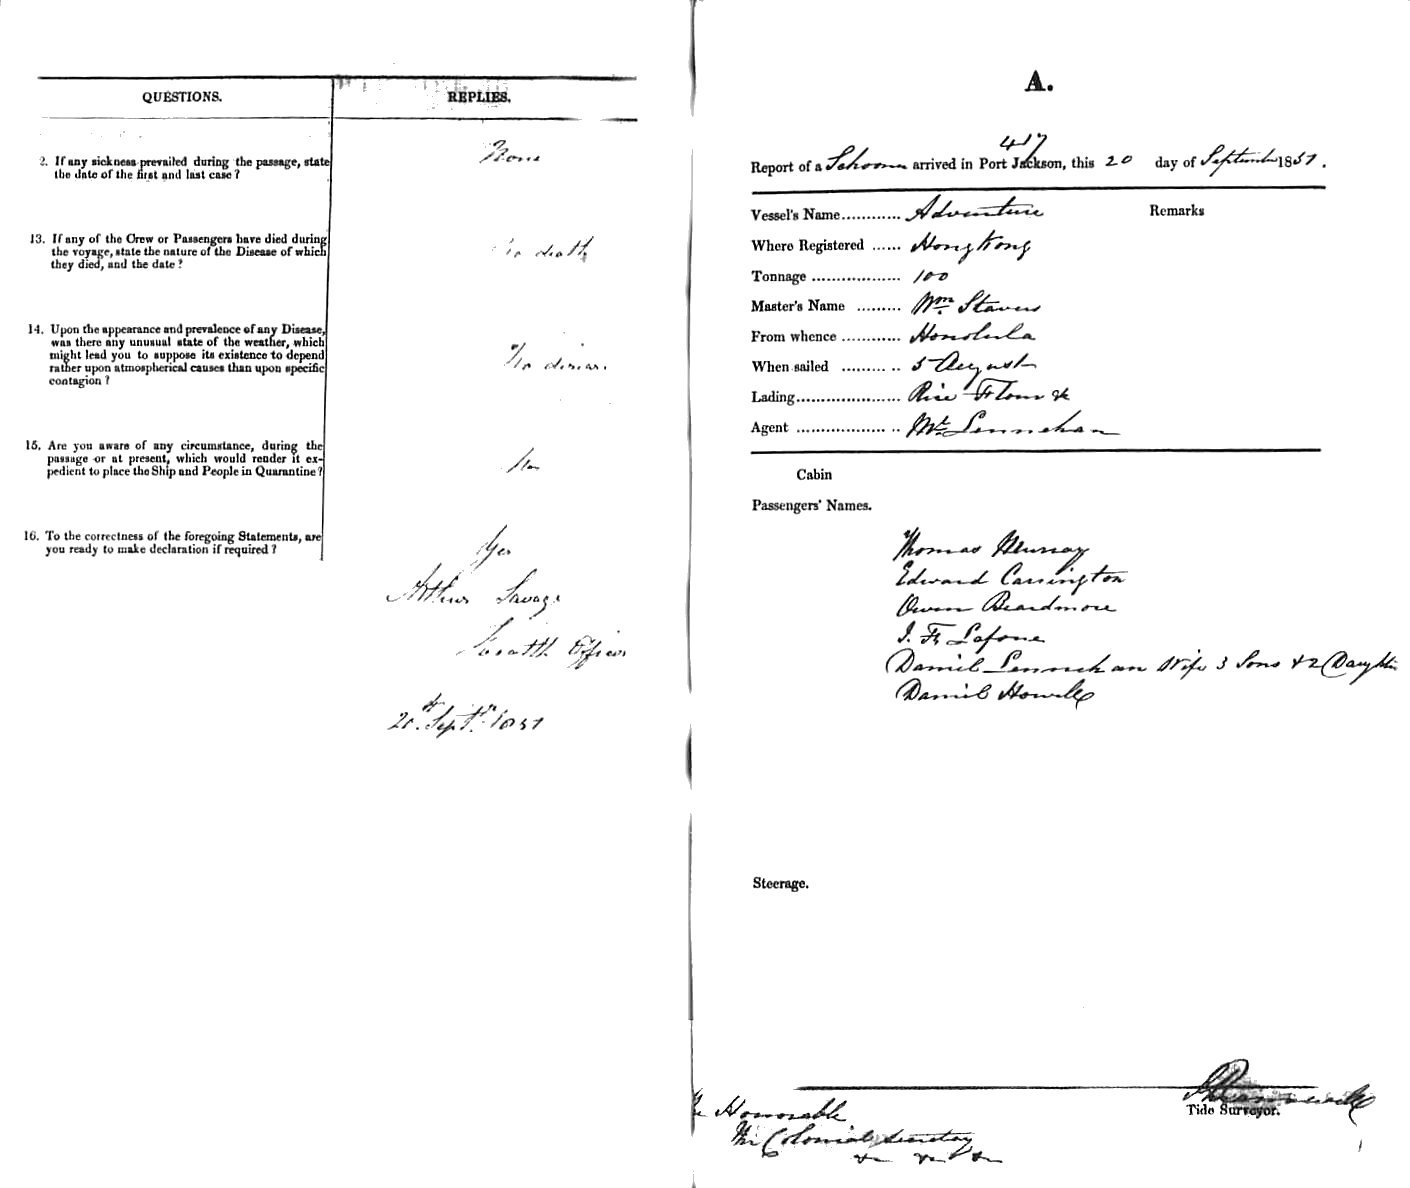 QUESTIONS.
REPLIES.
2. If any sickness prevailed during the passage, state
the date of the first and last case ?
None
13. If any of the Crew or Passengers have died during
the voyage, state the nature of the Disease of which
they died, and the date ?
No death
14. Upon the appearance and prevalence of any Disease,
was there any unusual state of the weather, which
might lead you to suppose its existence to depend
rather upon atmospherical causes than upon specific
contagion ?
No disease
15. Are you aware of any circumstance, during the
passage or at present, which would render it ex-
pedient to place the Ship and People in Quarantine ?
16. To the correctness of the foregoing Statements, are
you ready to make declaration if required ?
Yes
Arthur Savage
Health Officer
20th Septr. 1851
A.
417
Report of a Schooner arrived in Port Jackson, this 20 day of September 1851.
Vessel's Name............ Adventure
Remarks
Where Registered ...... Hong Kong
Tonnage .................. 100
Master's Name ......... Wm. Stavers
From whence ............ Honolula
When sailed ........... 5 August
Lading..................... Rice Flour &c
Agent .................... Mr. Lennehan
Cabin
Passengers' Names.
Thomas Murray
Edward Carrington
Owen Beardmore
J. Fr Lafone
Daniel Lennehan Wife 3 Sons & 2 Daughters
Daniel Howell
Steerage.
Tide Surveyor.
The Honorable
The Colonial Secretary
&c &c &c